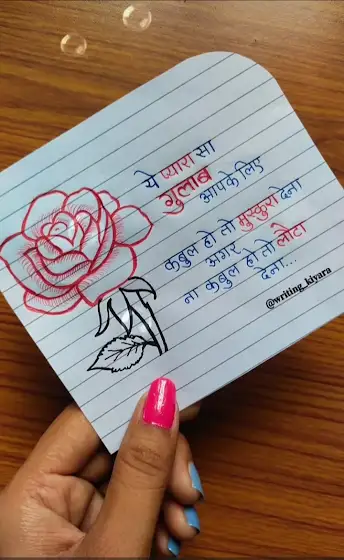 ये प्यारा सा
गुलाब
आपके लिए
कबुल हो तो मुस्कुरा देना
अगर
ना कबुल हो तो लौटा
देना...
@writing_kiyara